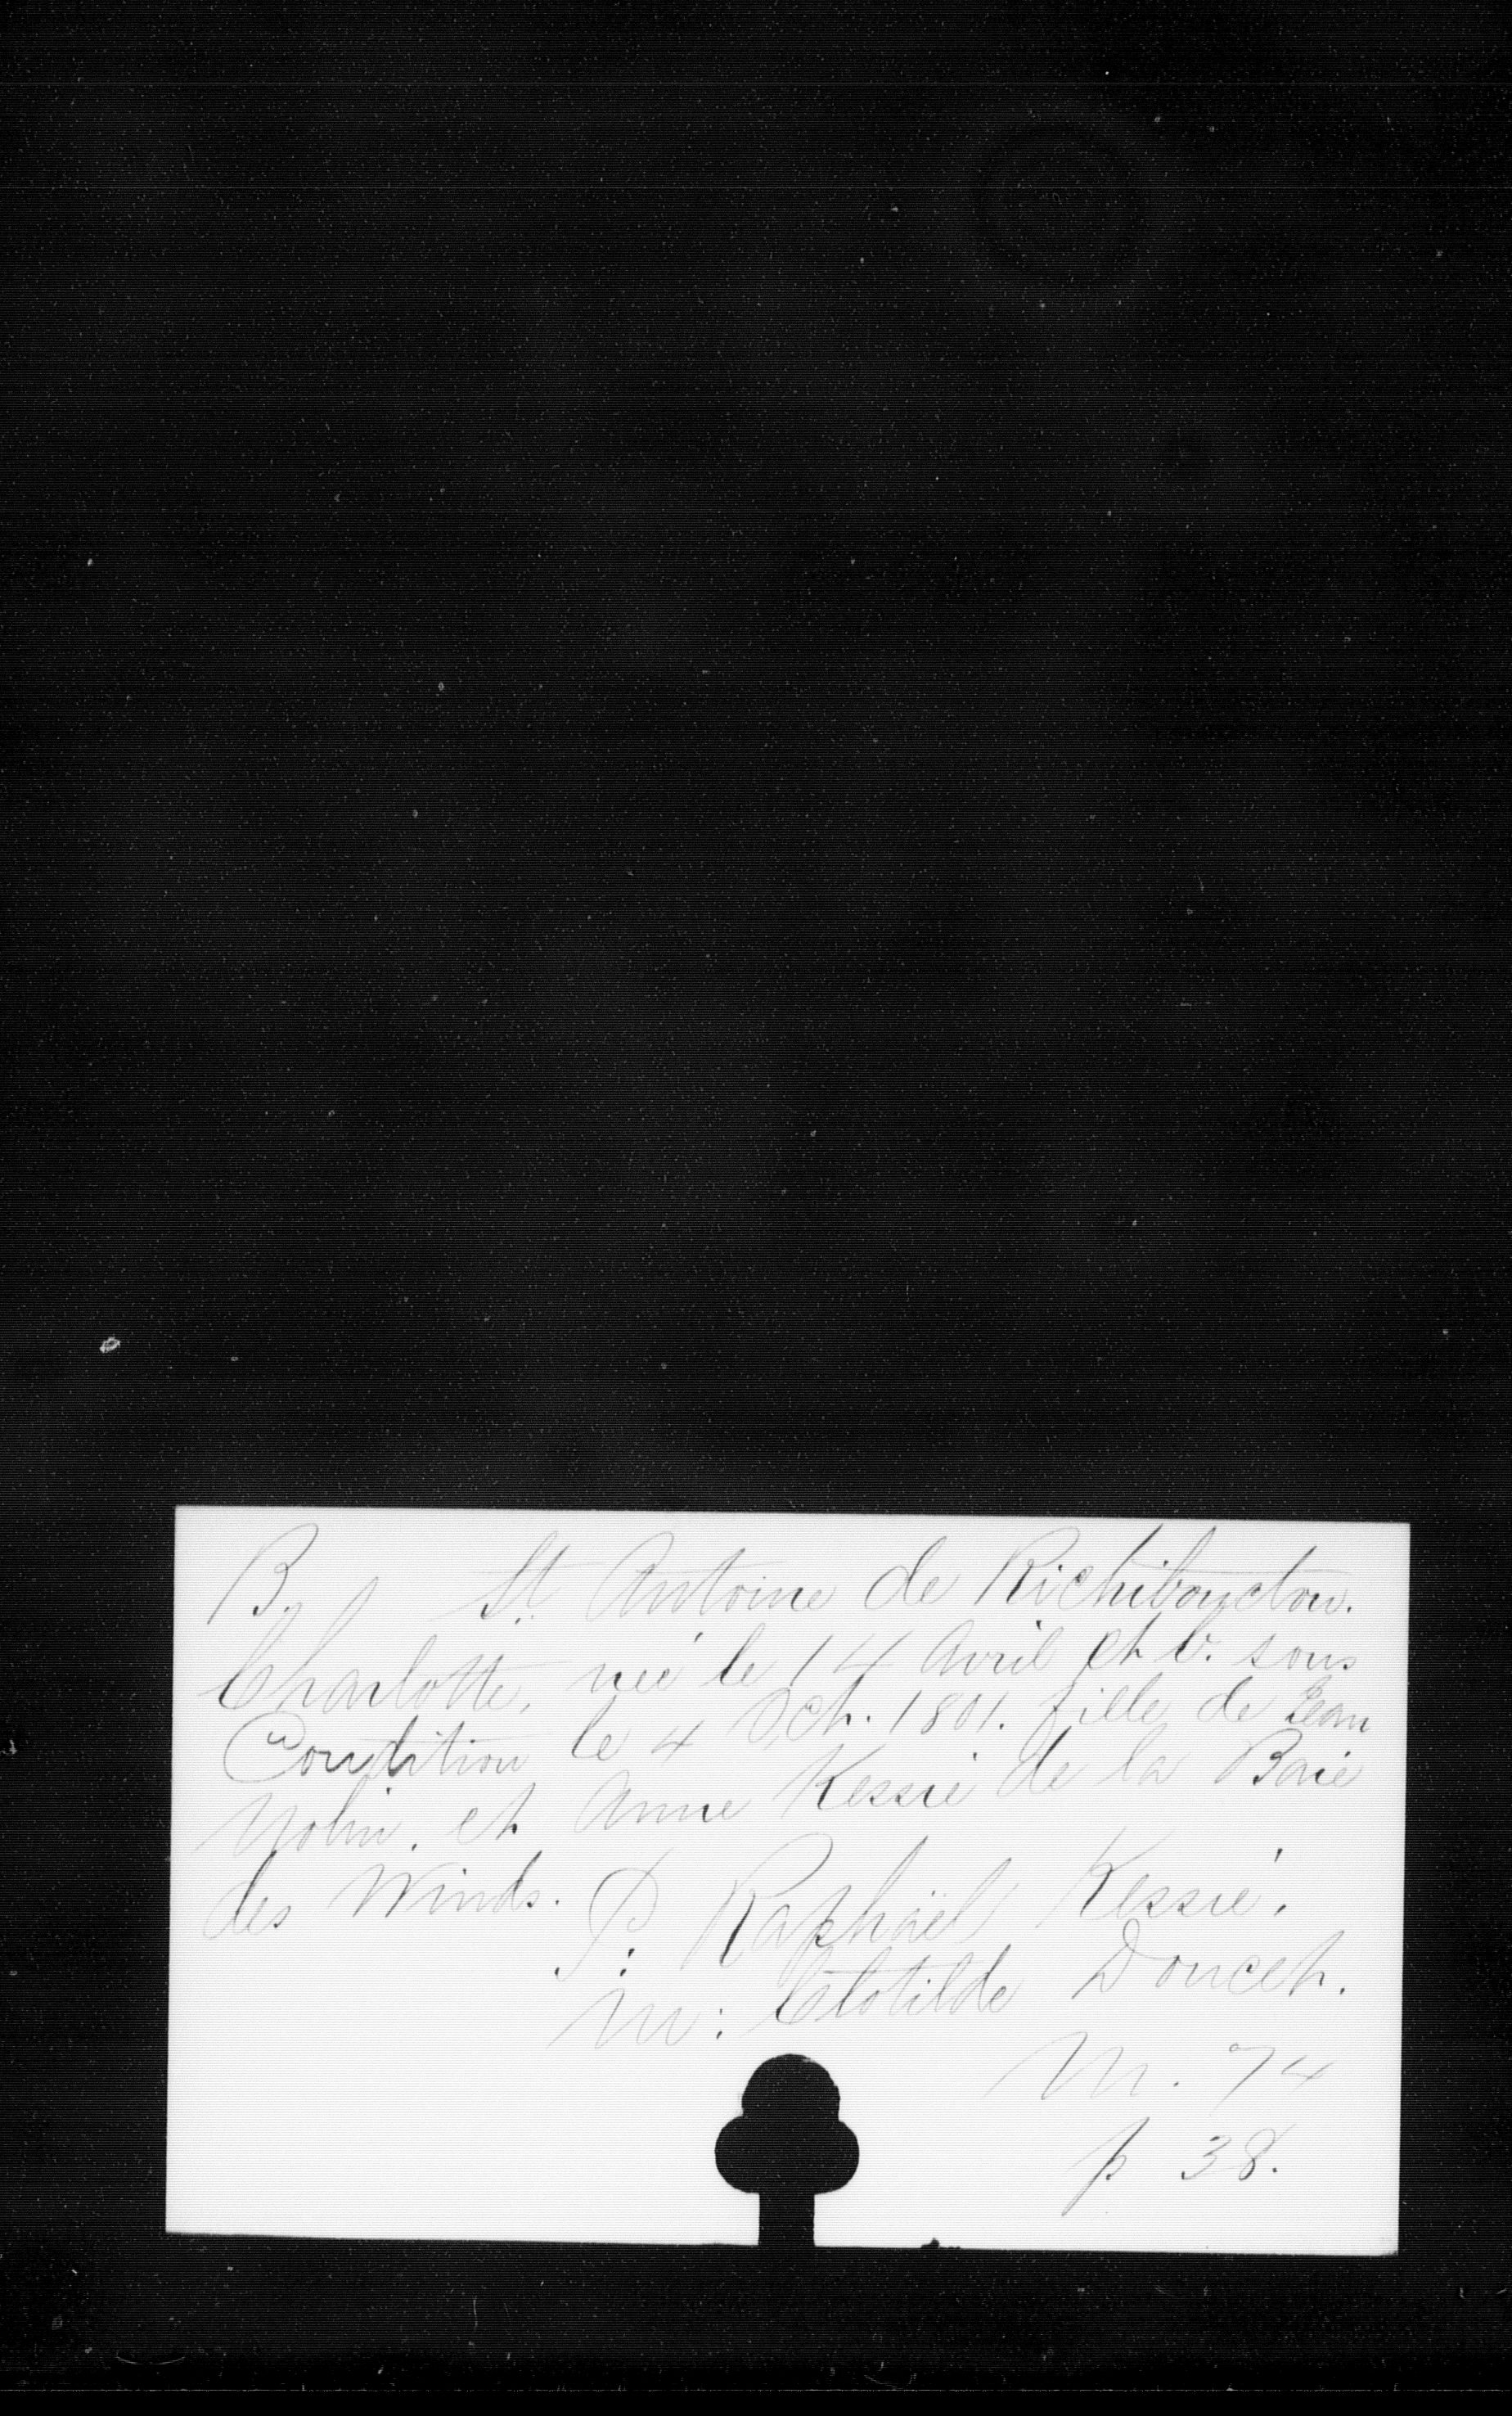 B. St Antoine de Richibouctou.
Charlotte, née le 14 Avril et b. sous
Condition le 4 Oct. 1801. fille de Jean
et Anne Kessié de la Baie
des Winds.
P: Raphaël Kessié.
M: Clotilde Doucet.
M. 74
p 38.